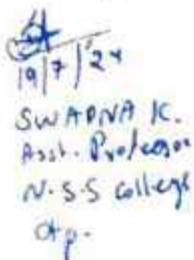 19/7/24
SWAPNA K.
Asst. Professor
N.S.S College
otp.